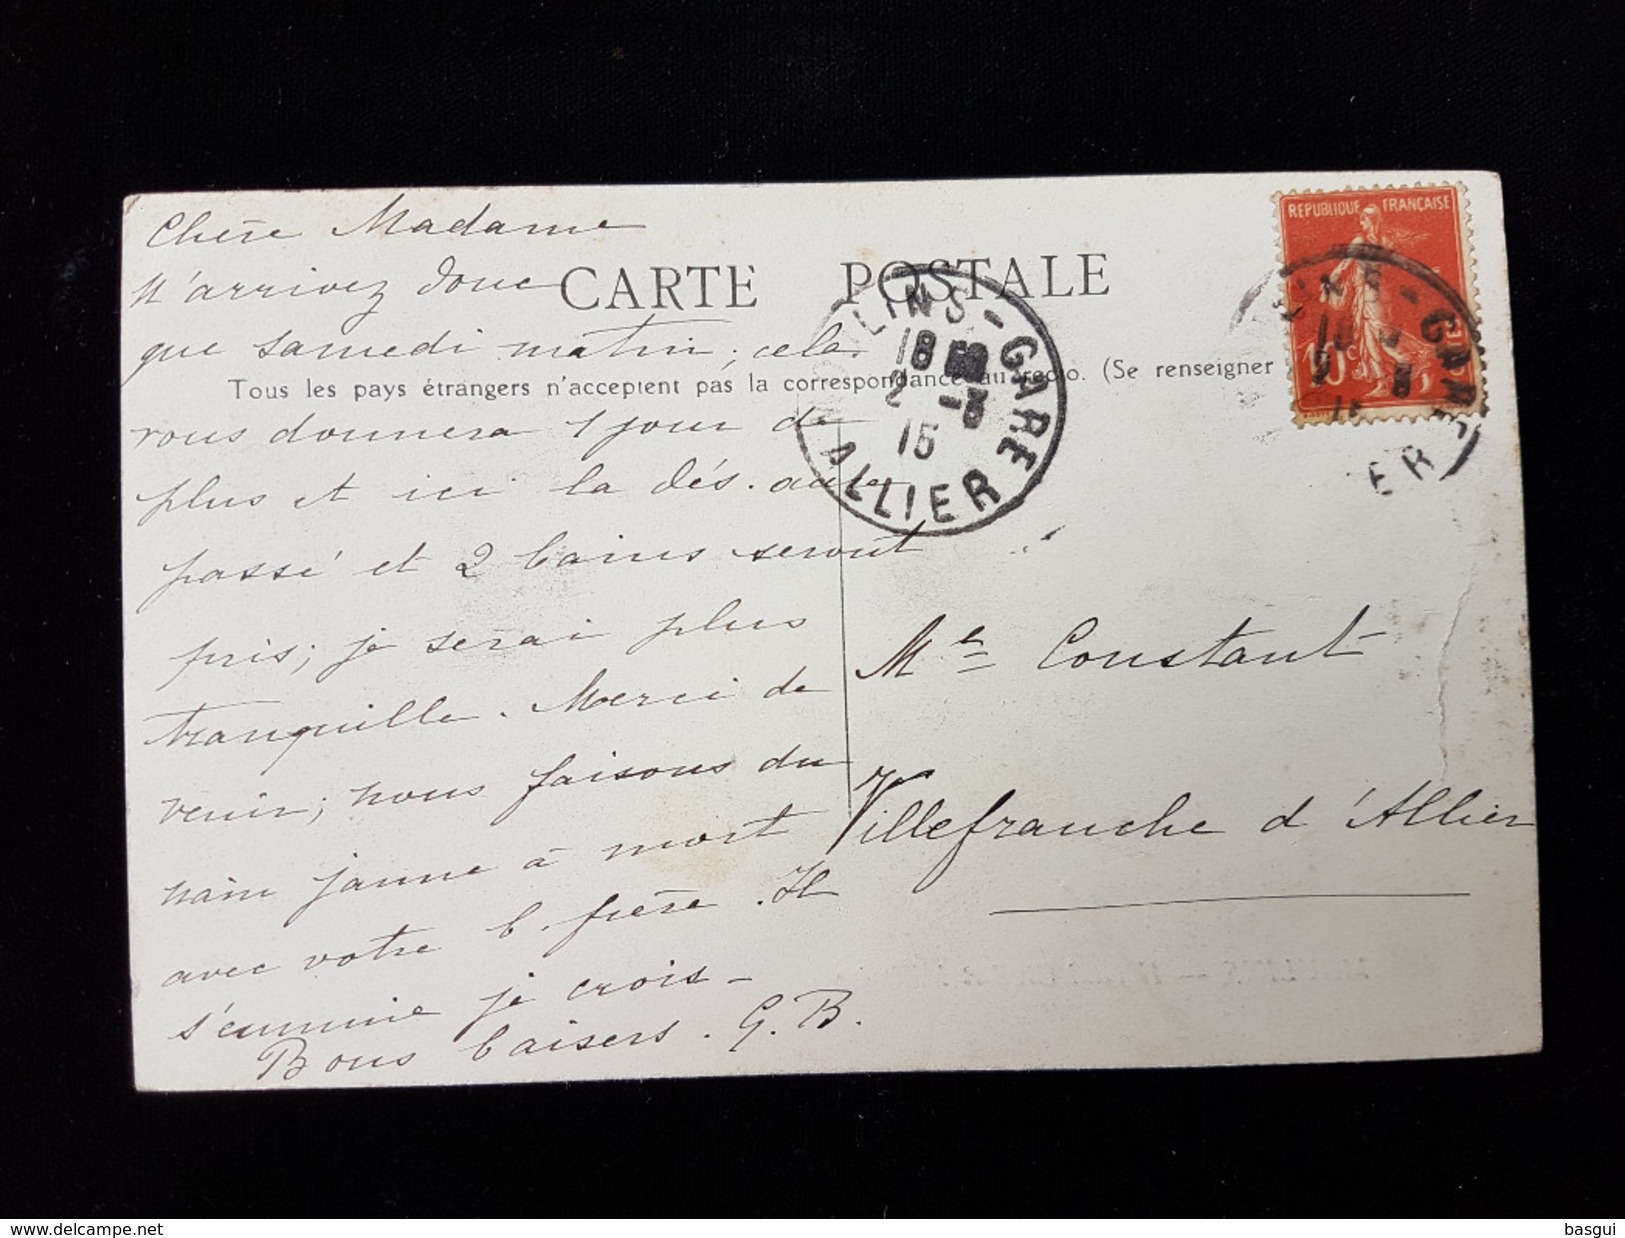 Chère Madame
N'arrivez donc
CARTE POSTALE
que samedi matin, cela
Tous les pays étrangers n'acceptent pas la correspondance au recto. (Se renseigner
vous donnera 1 jour de
plus et ici la dés.
passé et 2 bains seront
pris; je serai plus
tranquille. Merci de
venir; nous faisons du
nain jaune à mort
avec votre b. frère. Il
s'ennuie je crois –
Bons baisers. G. B.
REPUBLIQUE FRANÇAISE
10c
LINS - GARE
18 50
2 -3
15
ALLIER
GARE
ER
Me Constant
Villefranche d'Allier
delcampe.net
basgui